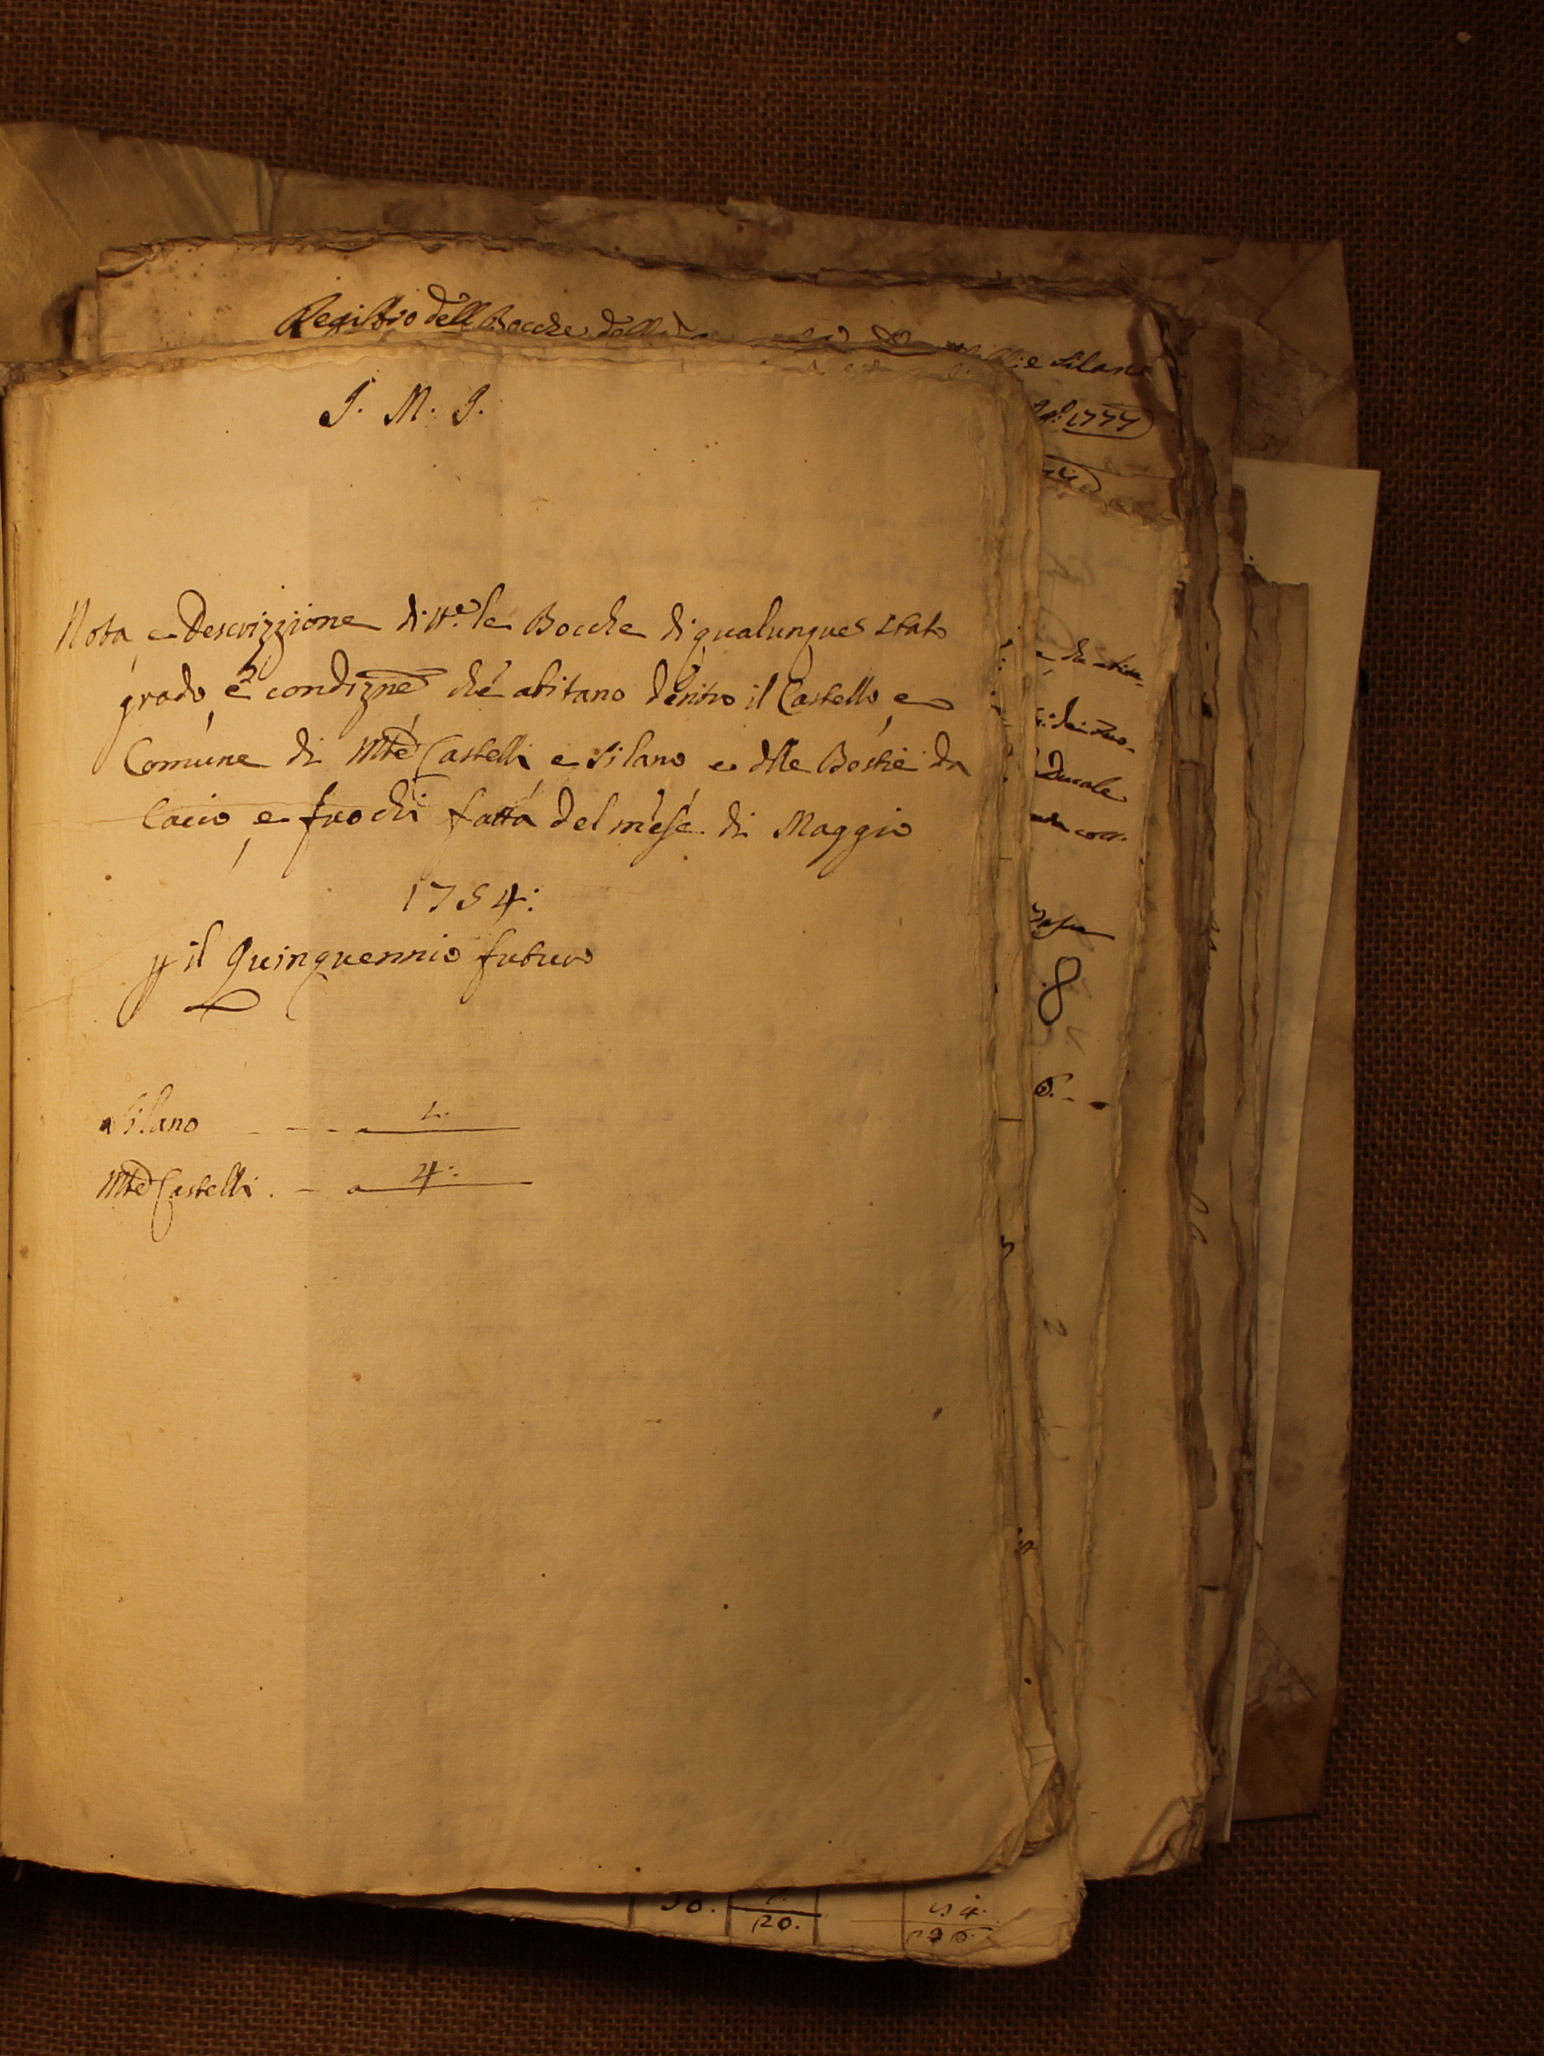 Registro dell Bocche dell
e Silano
1777
J. M. J.
Nota, e Descrizzione di tt.e le Bocche di qualunque Stato
grado, e condizne che abitano dentro il Castello, e
Comune di Mte Castelli e Silano e dlle Bestie da
Cacio, e fuochi fatta del mese di Maggio
1754:
p il Quinquennio futuro
Silano - - - 2.
Mte Castelli. - 4:
Ducale
8
6. - -
30.
120.
54.